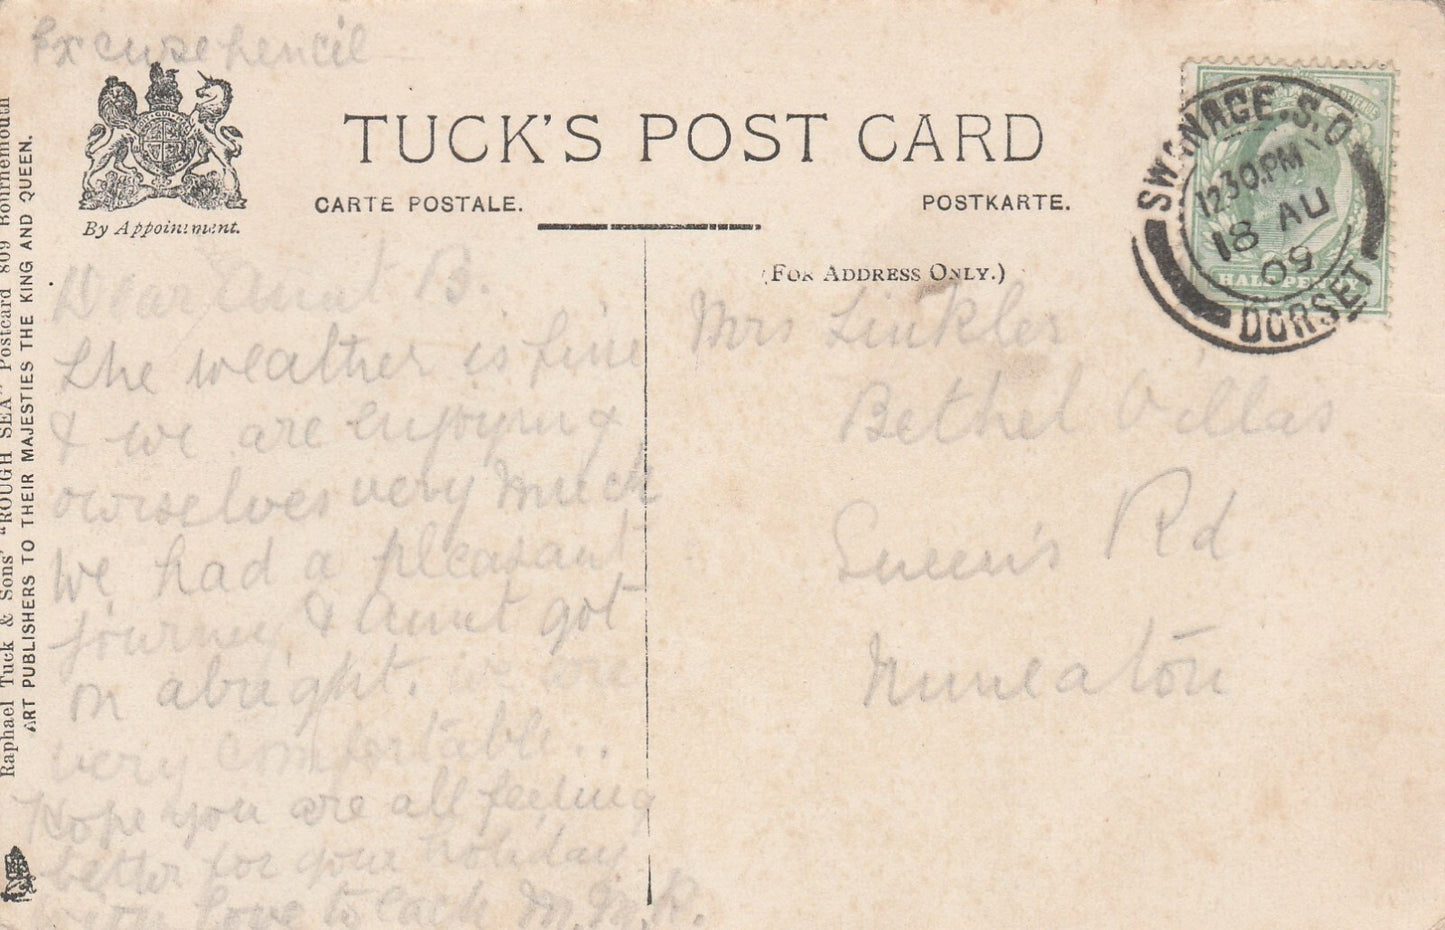 Excuse pencil
TUCK'S POST CARD
CARTE POSTALE.
POSTKARTE.
By Appointment.
(FOR ADDRESS ONLY.)
SWANAGE.S.O
12 30.PM
18 AU
09
DORSET
REVENUE
HALFPENNY
Dear Aunt B.
The weather is fine
& we are enjoying
ourselves very much
We had a pleasant
journey & Aunt got
on alright. we are
very comfortable..
Hope you are all feeling
better for your holiday
with love to each M.M.R.
Mrs Linkler
Bethel Villas
Queen's Rd
Nuneaton
Raphael Tuck & Sons' "ROUGH SEA" Postcard 809 Bournemouth
ART PUBLISHERS TO THEIR MAJESTIES THE KING AND QUEEN.